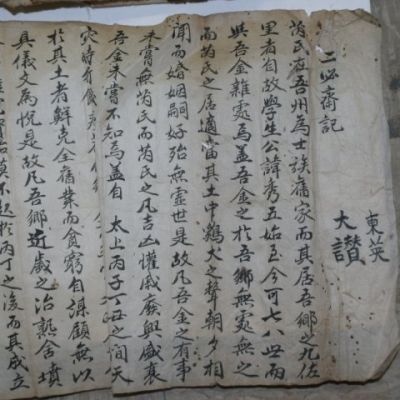 二必齋記
東英
大讃
芮氏在吾州為士族舊家而其居吾鄉之九佐
里者自故學生公諱秀五始至今可七八世而
與吾金雜處焉盖吾金之於吾鄉無處無之
而芮氏之居適當其土中鷄犬之聲朝夕相
聞而婚姻嗣好殆無虛世是故凡吾金之有事
未嘗無芮氏而芮氏之凡吉凶懽戚廢興盛衰
吾金未嘗不知焉盖自太上丙子丁丑之間天
灾時有
於其土者鮮克全舊業而貧窮自謀顧無以
具儀文為悅是故凡吾鄉近歲之治熟舍墳
起於丙丁之後而其成立